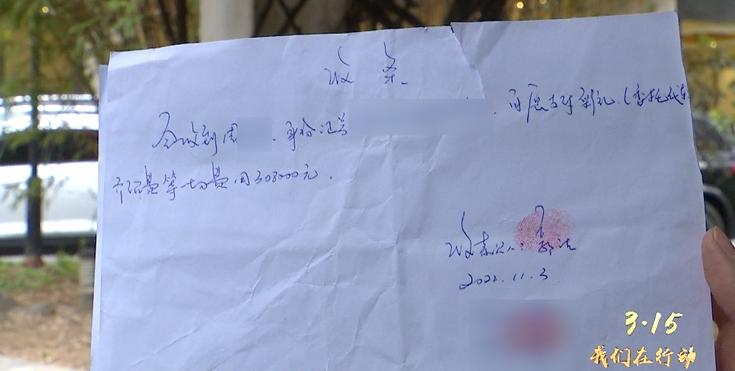 收条
今收到周 ，身份证号 ，自愿支付彩礼（委托
介绍费等一切费用308000元。
收款人：
2022.11.3
3·15
我们在行动